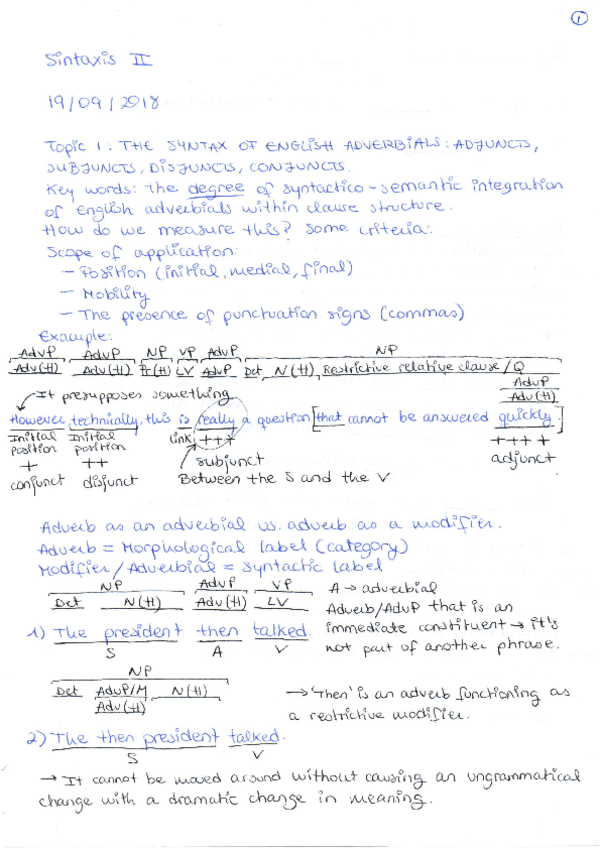 1
Sintaxis II
19/09/2018
Topic 1: THE SYNTAX OF ENGLISH ADVERBIALS: ADJUNCTS,
SUBJUNCTS, DISJUNCTS, CONJUNCTS.
Key words: The degree of syntactico-semantic integration
of English adverbials within clause structure.
How do we measure this? Some criteria:
Scope of application:
– Position (initial, medial, final)
– Mobility
– The presence of punctuation signs (commas)
Example:
AdvP AdvP NP VP AdvP NP
Adv(H) Adv(H) Pr(H) LV AdvP Det N(H) Restrictive relative clause/Q
AdvP
→ It presupposes something Adv(H)
However, technically, this is really a question [that cannot be answered quickly]
Initial position Initial position link +++ ++++
+ ++ subjunct adjunct
conjunct disjunct Between the S and the V
Adverb as an adverbial vs. adverb as a modifier.
Adverb = Morphological label (category)
Modifier/Adverbial = Syntactic label
NP AdvP VP A → adverbial
Det N(H) Adv(H) LV Adverb/AdvP that is an
1) The president then talked. immediate constituent → it's
S A V not part of another phrase.
NP
Det AdvP/M N(H) → 'Then' is an adverb functioning as
Adv(H) a restrictive modifier.
2) The then president talked.
S V
→ It cannot be moved around without causing an ungrammatical
change with a dramatic change in meaning.